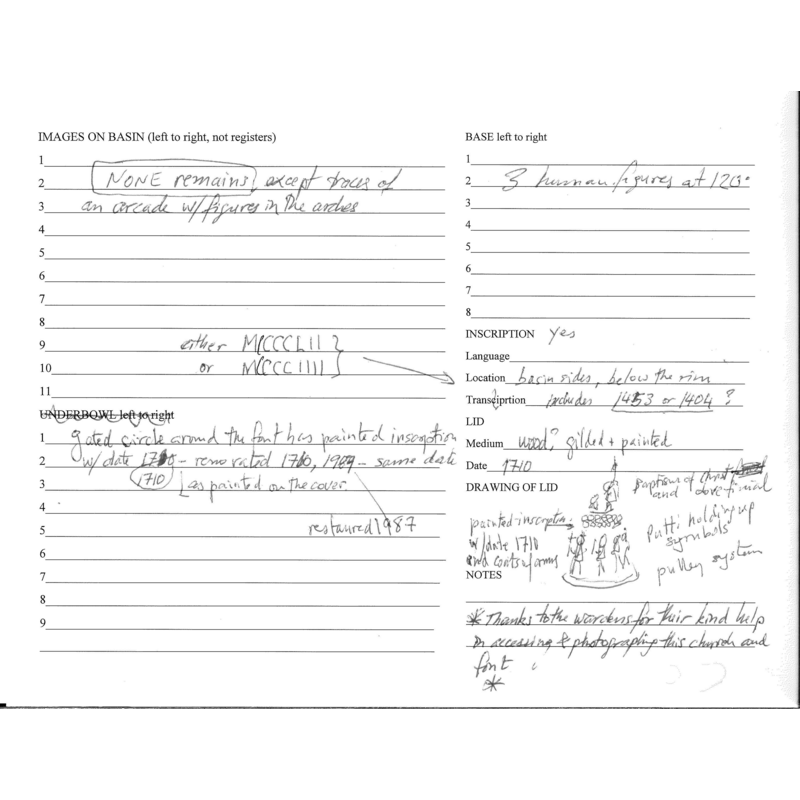 IMAGES ON BASIN (left to right, not registers)
1
2 NONE remains, except traces of
3 an arcade w/figures in the arches
4
5
6
7
8
9 either MCCCCLII
10 or MCCCCIIII
11
UNDERBOWL left to right
1 gated circle around the font has painted inscription
2 w/ date 1710 - renovated 1710, 1909 - same date
3 1710 as painted on the cover
4
5 restaured 1987
6
7
8
9
BASE left to right
1
2 3 human figures at 120°
3
4
5
6
7
8
INSCRIPTION Yes
Language
Location basin sides, below the rim
Transciprtion includes 1453 or 1404?
LID
Medium wood? gilded + painted
Date 1710
DRAWING OF LID
baptism of Christ
and dove finial
painted inscription
w/date 1710
and coats of arms
Putti holding up
symbols
pulley system
NOTES
* Thanks to the wardens for their kind help
in accessing & photographing this church and
font
*